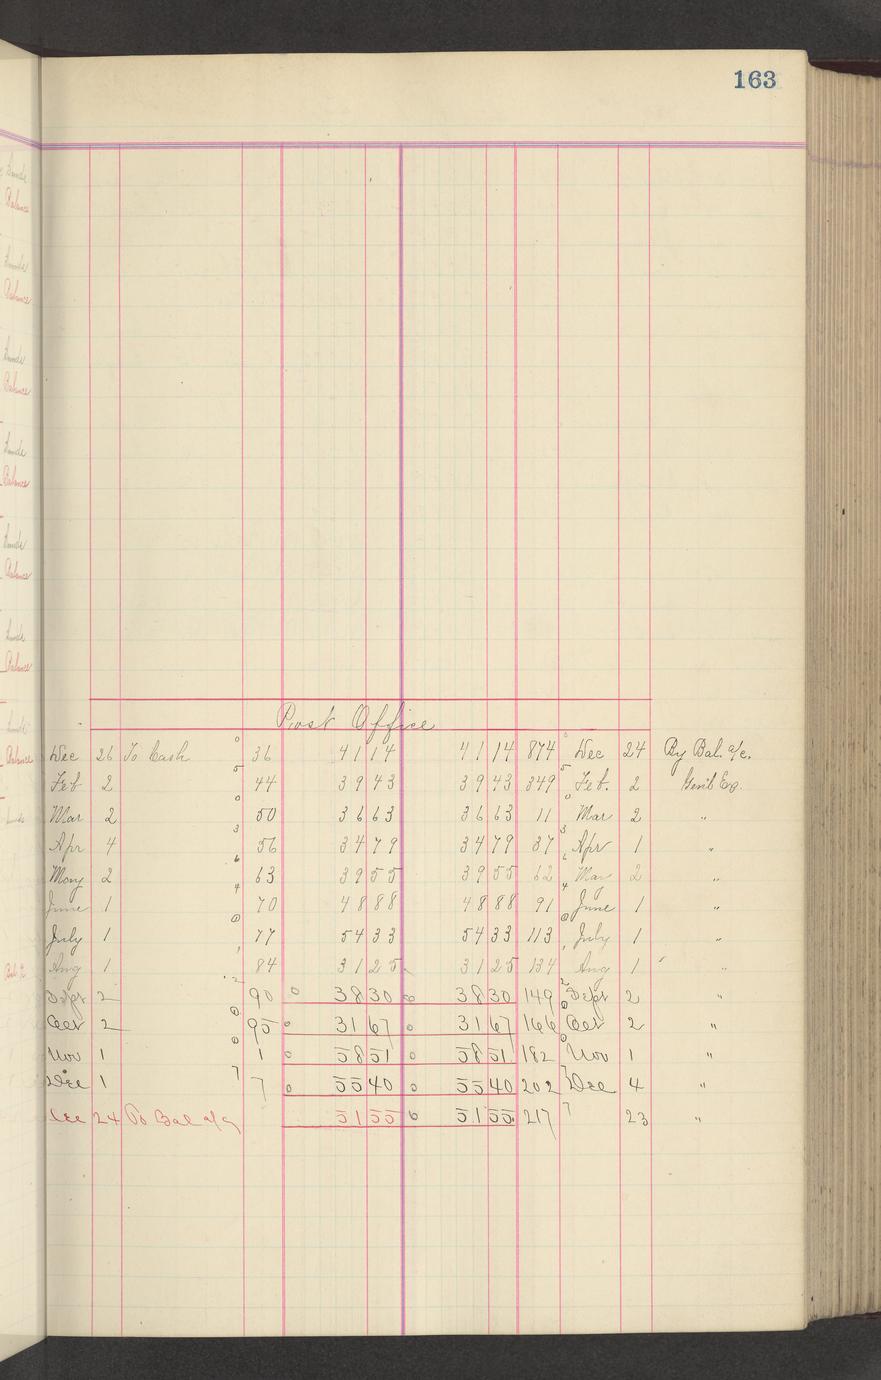 163
Post Office
Dec 26 To Cash 0 36 41 14 41 14 874 0 Dec 24 By Bal. a/c.
Feb 2 5 44 39 43 39 43 349 5 Feb. 2 Gen'l Exp.
Mar 2 0 50 36 63 36 63 11 0 Mar 2 "
Apr 4 3 56 34 79 34 79 37 3 Apr 1 "
May 2 6 63 39 55 39 55 62 6 May 2 "
June 1 4 70 48 88 48 88 91 4 June 1 "
July 1 0 77 54 33 54 33 113 0 July 1 "
Aug 1 1 84 31 25 31 25 134 1 Aug 1 "
Sept 2 2 90 0 38 30 0 38 30 149 2 Sept 2 "
Oct 2 0 95 0 31 67 0 31 67 166 0 Oct 2 "
Nov 1 0 1 0 58 51 0 58 51 182 0 Nov 1 "
Dec 1 7 7 0 55 40 0 55 40 202 7 Dec 4 "
Dec 24 To Bal a/c 51 55 0 51 55 217 7 23 "